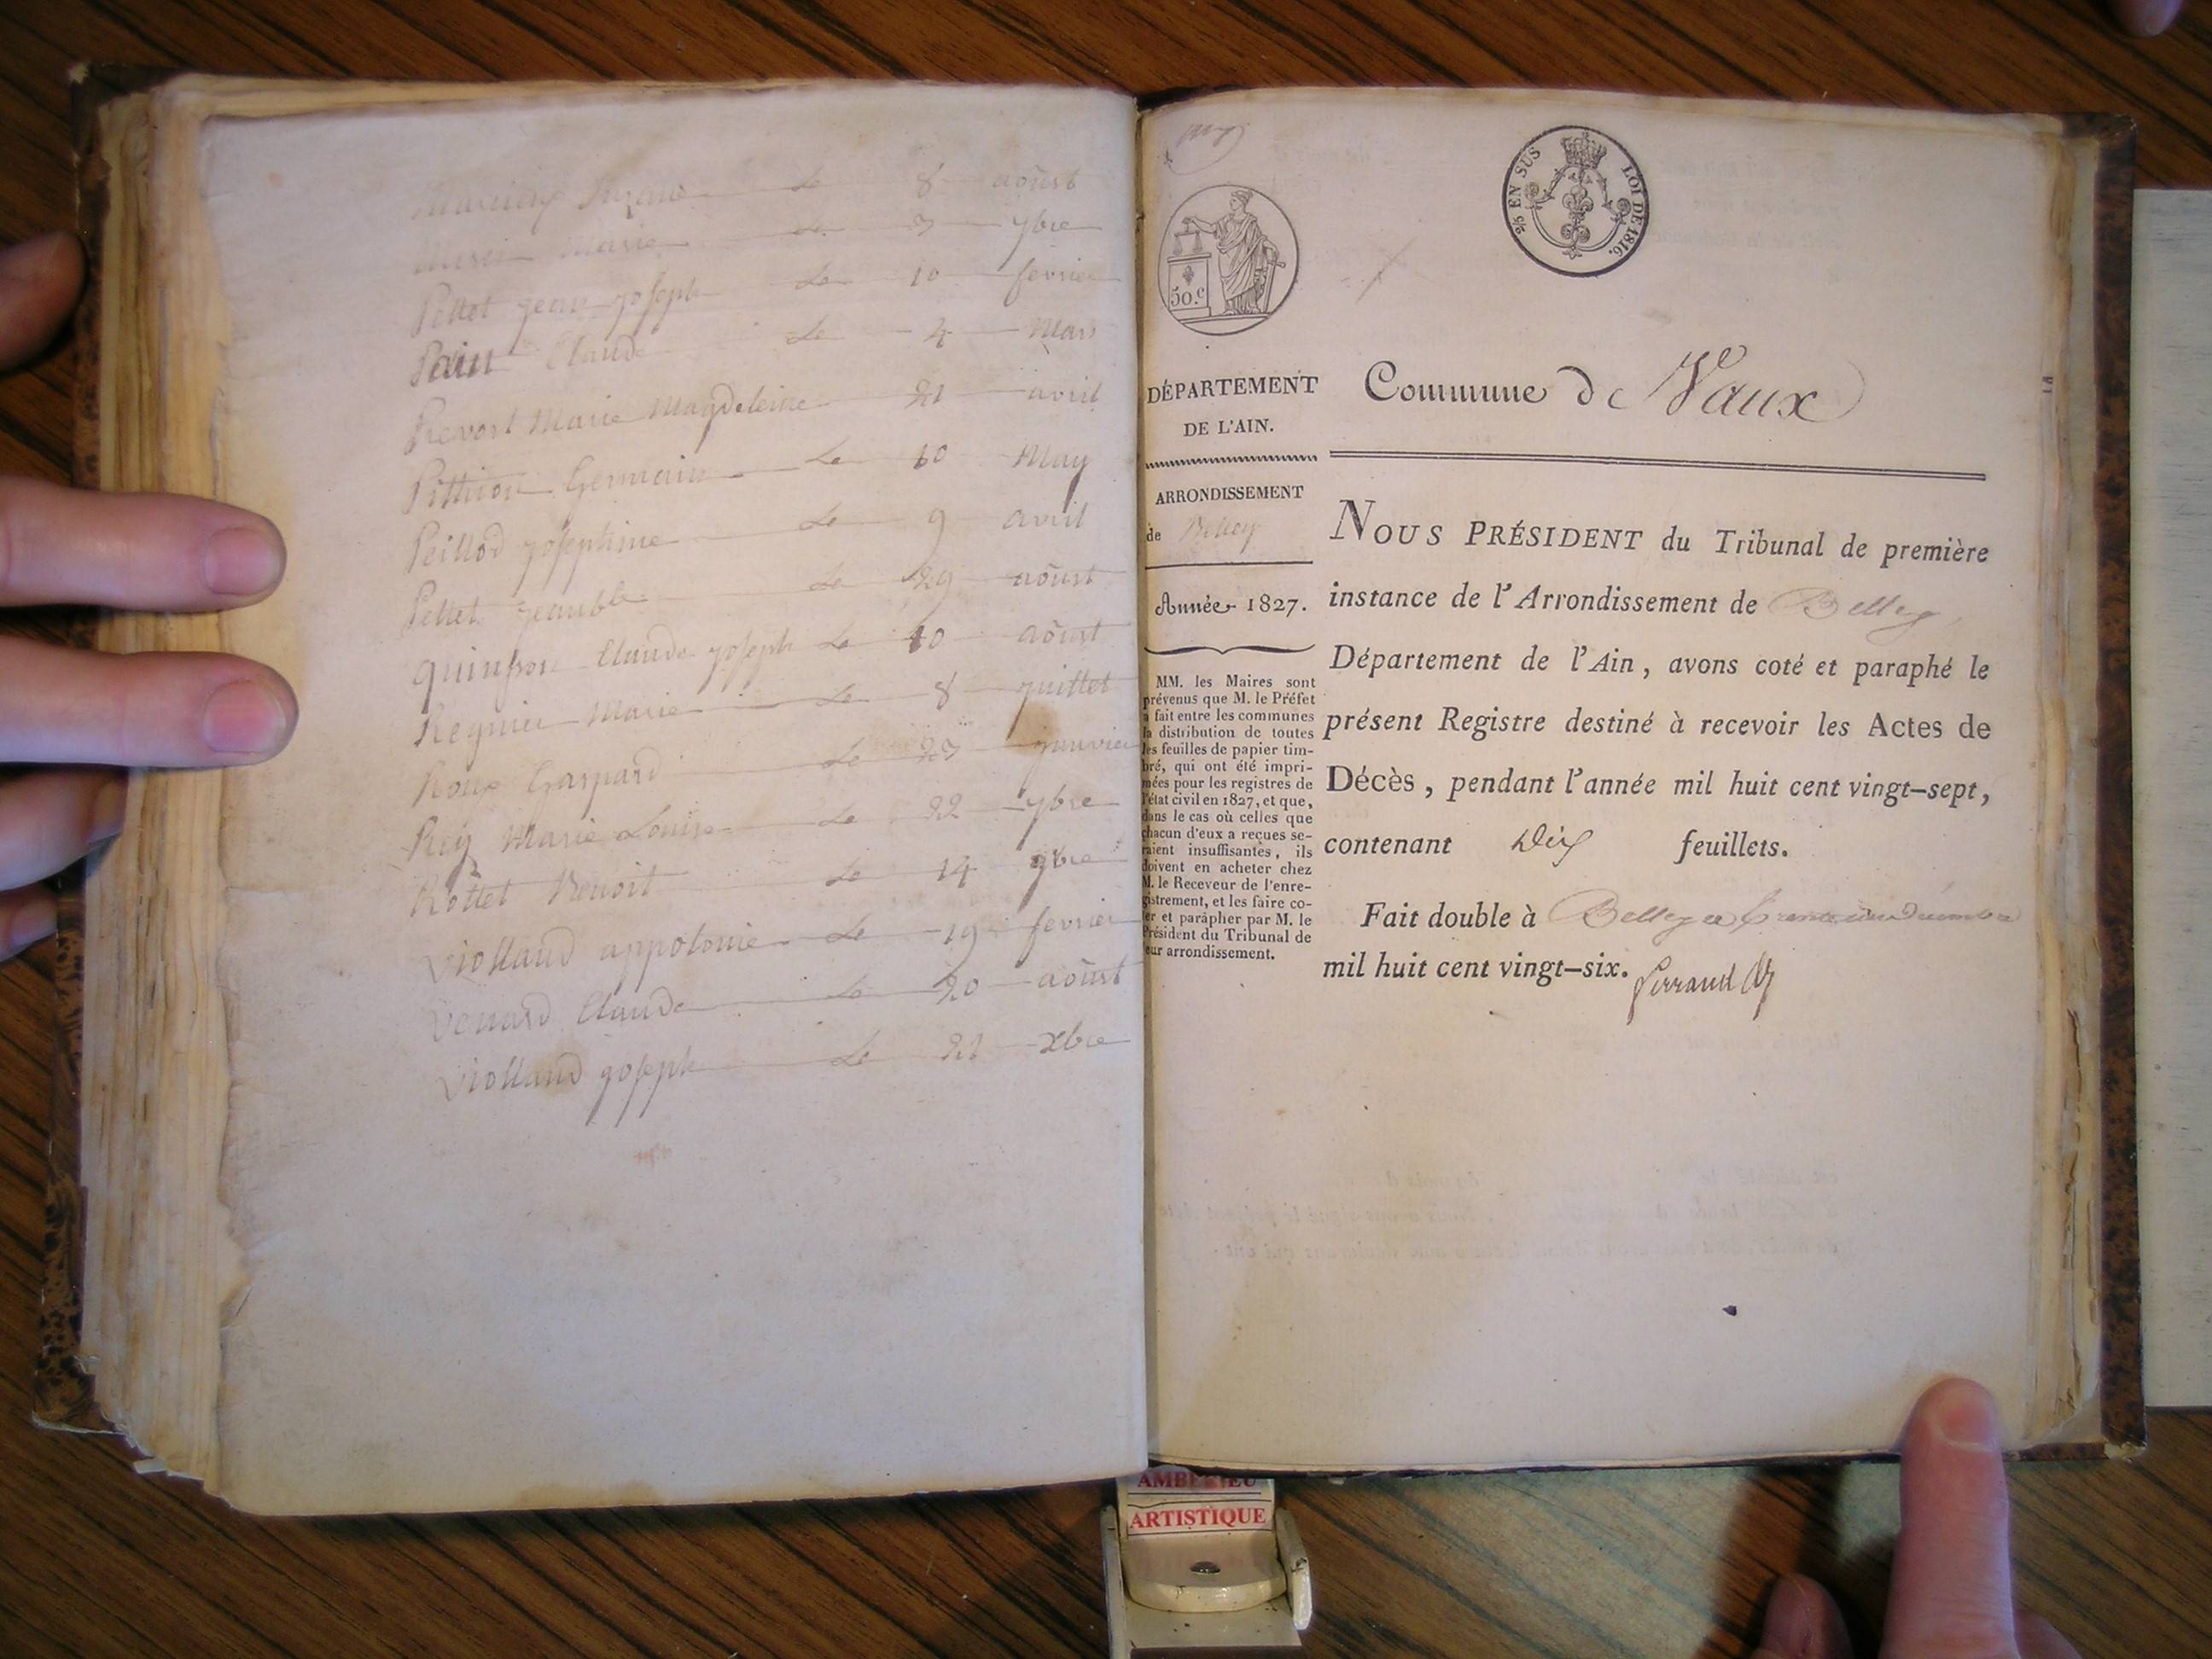 8 aoust
Marie 7bre
Pettet jean joseph Le 10 fevrier
Pain Claude Le 4 Mars
Prevost Marie Magdeleine 21 avril
Pittion Germain Le 10 May
Peillod josephine Le 9 avril
Pettet Le 29 aoust
quinson Claude joseph Le 10 aoust
Regnier Marie Le 8 juillet
Roux Gaspard Le janvier
Rey Marie Louise Le 22 7bre
Rottet Benoit Le 14 9bre
violland appolonie Le 19 fevrier
venard Claude Le 20 aoust
violland joseph Le 21 xbre
2/5 EN SUS LOI DE 1816.
50.c
DÉPARTEMENT
DE L'AIN.
ARRONDISSEMENT
de Belley
Année 1827.
MM. les Maires sont
prévenus que M. le Préfet
a fait entre les communes
la distribution de toutes
les feuilles de papier tim-
bré, qui ont été impri-
mées pour les registres de
l'état civil en 1827, et que,
dans le cas où celles que
chacun d'eux a reçues se-
raient insuffisantes, ils
doivent en acheter chez
M. le Receveur de l'enre-
gistrement, et les faire co-
ter et parapher par M. le
Président du Tribunal de
leur arrondissement.
Commune de Vaux
NOUS PRÉSIDENT du Tribunal de première
instance de l'Arrondissement de Belley
Département de l'Ain, avons coté et paraphé le
présent Registre destiné à recevoir les Actes de
Décès, pendant l'année mil huit cent vingt-sept,
contenant Dix feuillets.
Fait double à Belley
mil huit cent vingt-six. Perraud
AMBERIEU
ARTISTIQUE